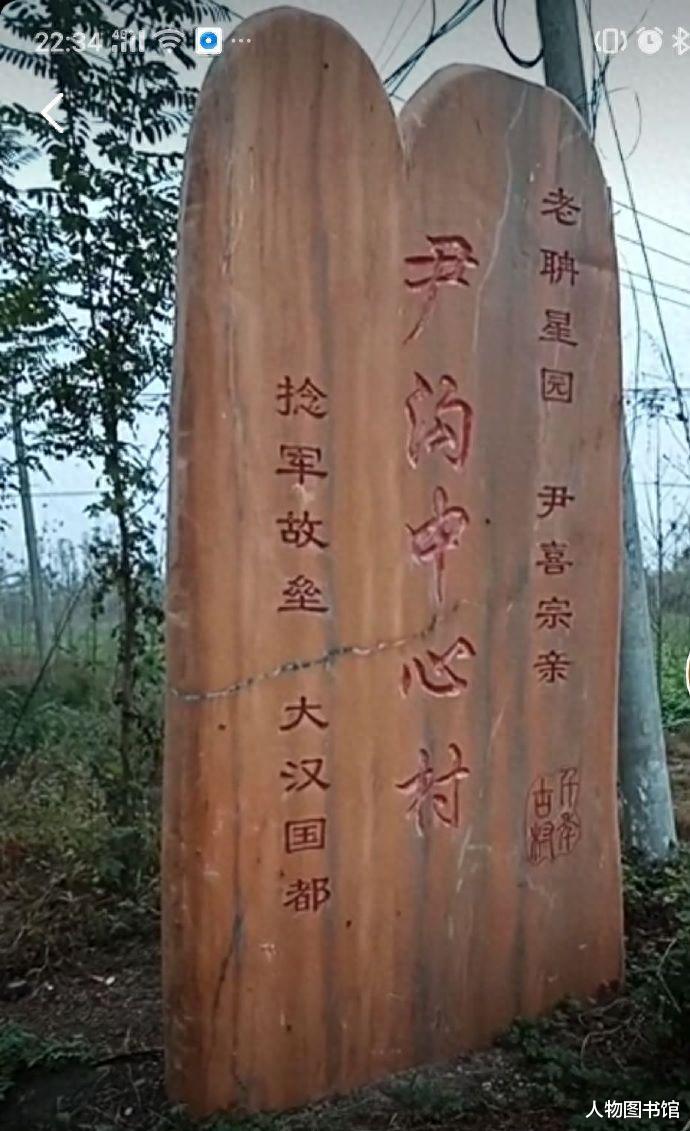 22:34
老聃星园 尹喜宗亲
千年
古村
尹沟中心村
捻军故垒 大汉国都
人物图书馆